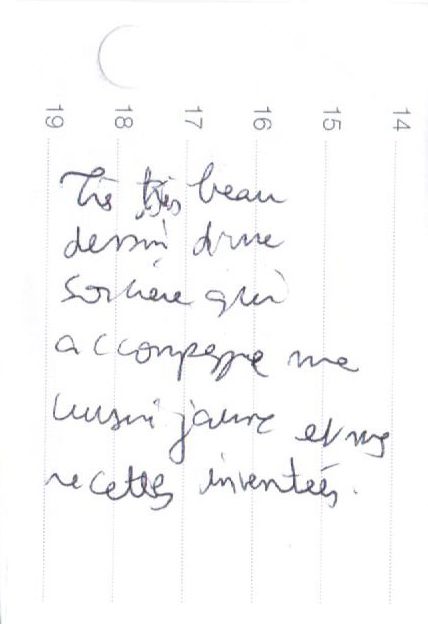 19 18 17 16 15 14
Très très beau
dessin d'une
sorcière qui
accompagne ma
cuisine jaune et mes
recettes inventées.